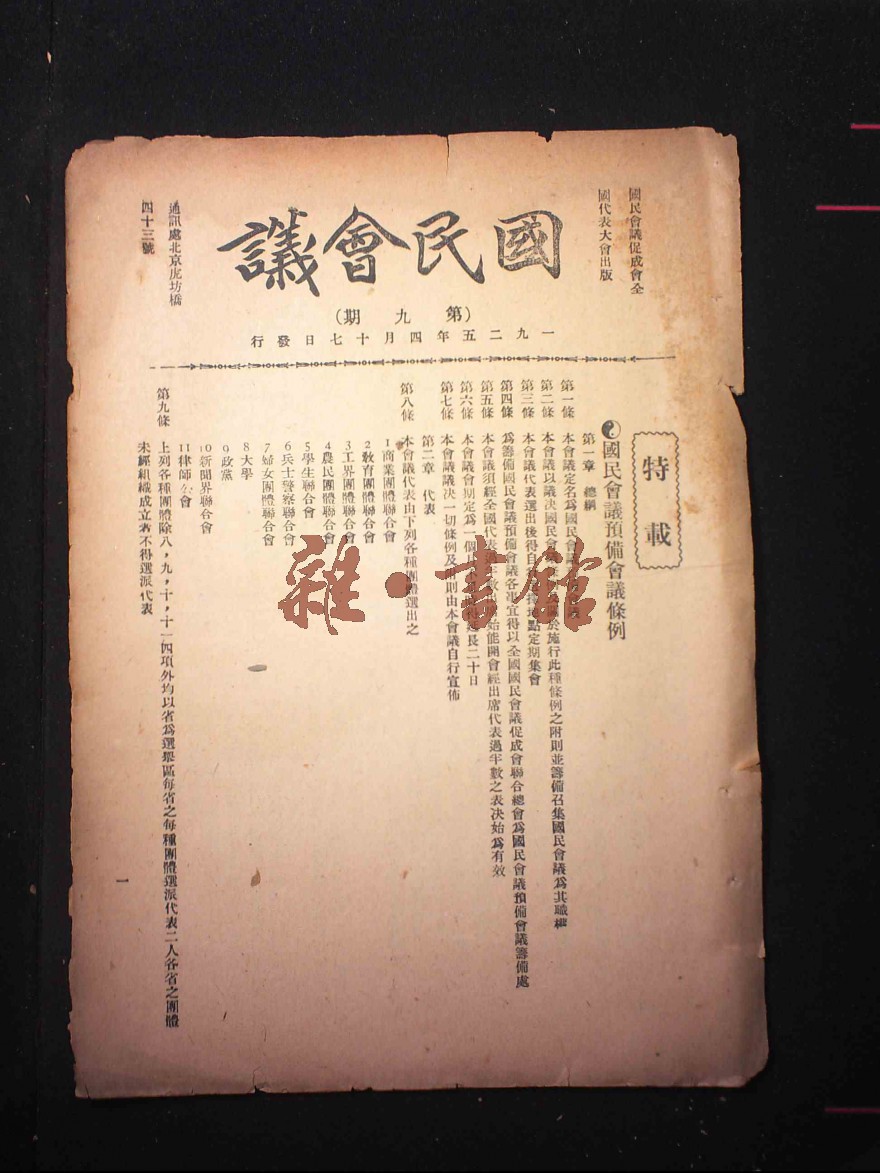 國民會議促成會全
國代表大會出版
國民會議
(第九期)
一九二五年四月十七日發行
通訊處北京虎坊橋
四十三號
特載
國民會議預備會議條例
第一章 總綱
第一條 本會議定名為國民會議
第二條 本會議以議决國民會 於施行此種條例之附則並籌備召集國民會議為其職權
第三條 本會議代表選出後得自 地點定期集會
第四條 為籌備國民會議預備會議各事宜得以全國國民會議促成會聯合總會為國民會議預備會議籌備處
第五條 本會議須經全國代表過半數 始能開會經出席代表過半數之表决始為有效
第六條 本會議會期定為一個 延長二十日
第七條 本會議議决一切條例及附則由本會議自行宣佈
第二章 代表
第八條 本會議代表由下列各種團體選出之
1商業團體聯合會
2敎育團體聯合會
3工界團體聯合會
4農民團體聯合會
5學生聯合會
6兵士警察聯合會
7婦女團體聯合會
8大學
9政黨
10新聞界聯合會
11律師公會
第九條 上列各種團體除八，九，十，十一四項外均以省為選舉區每省之每種團體選派代表二人各省之團體
未經組織成立者不得選派代表
一
雜·書館